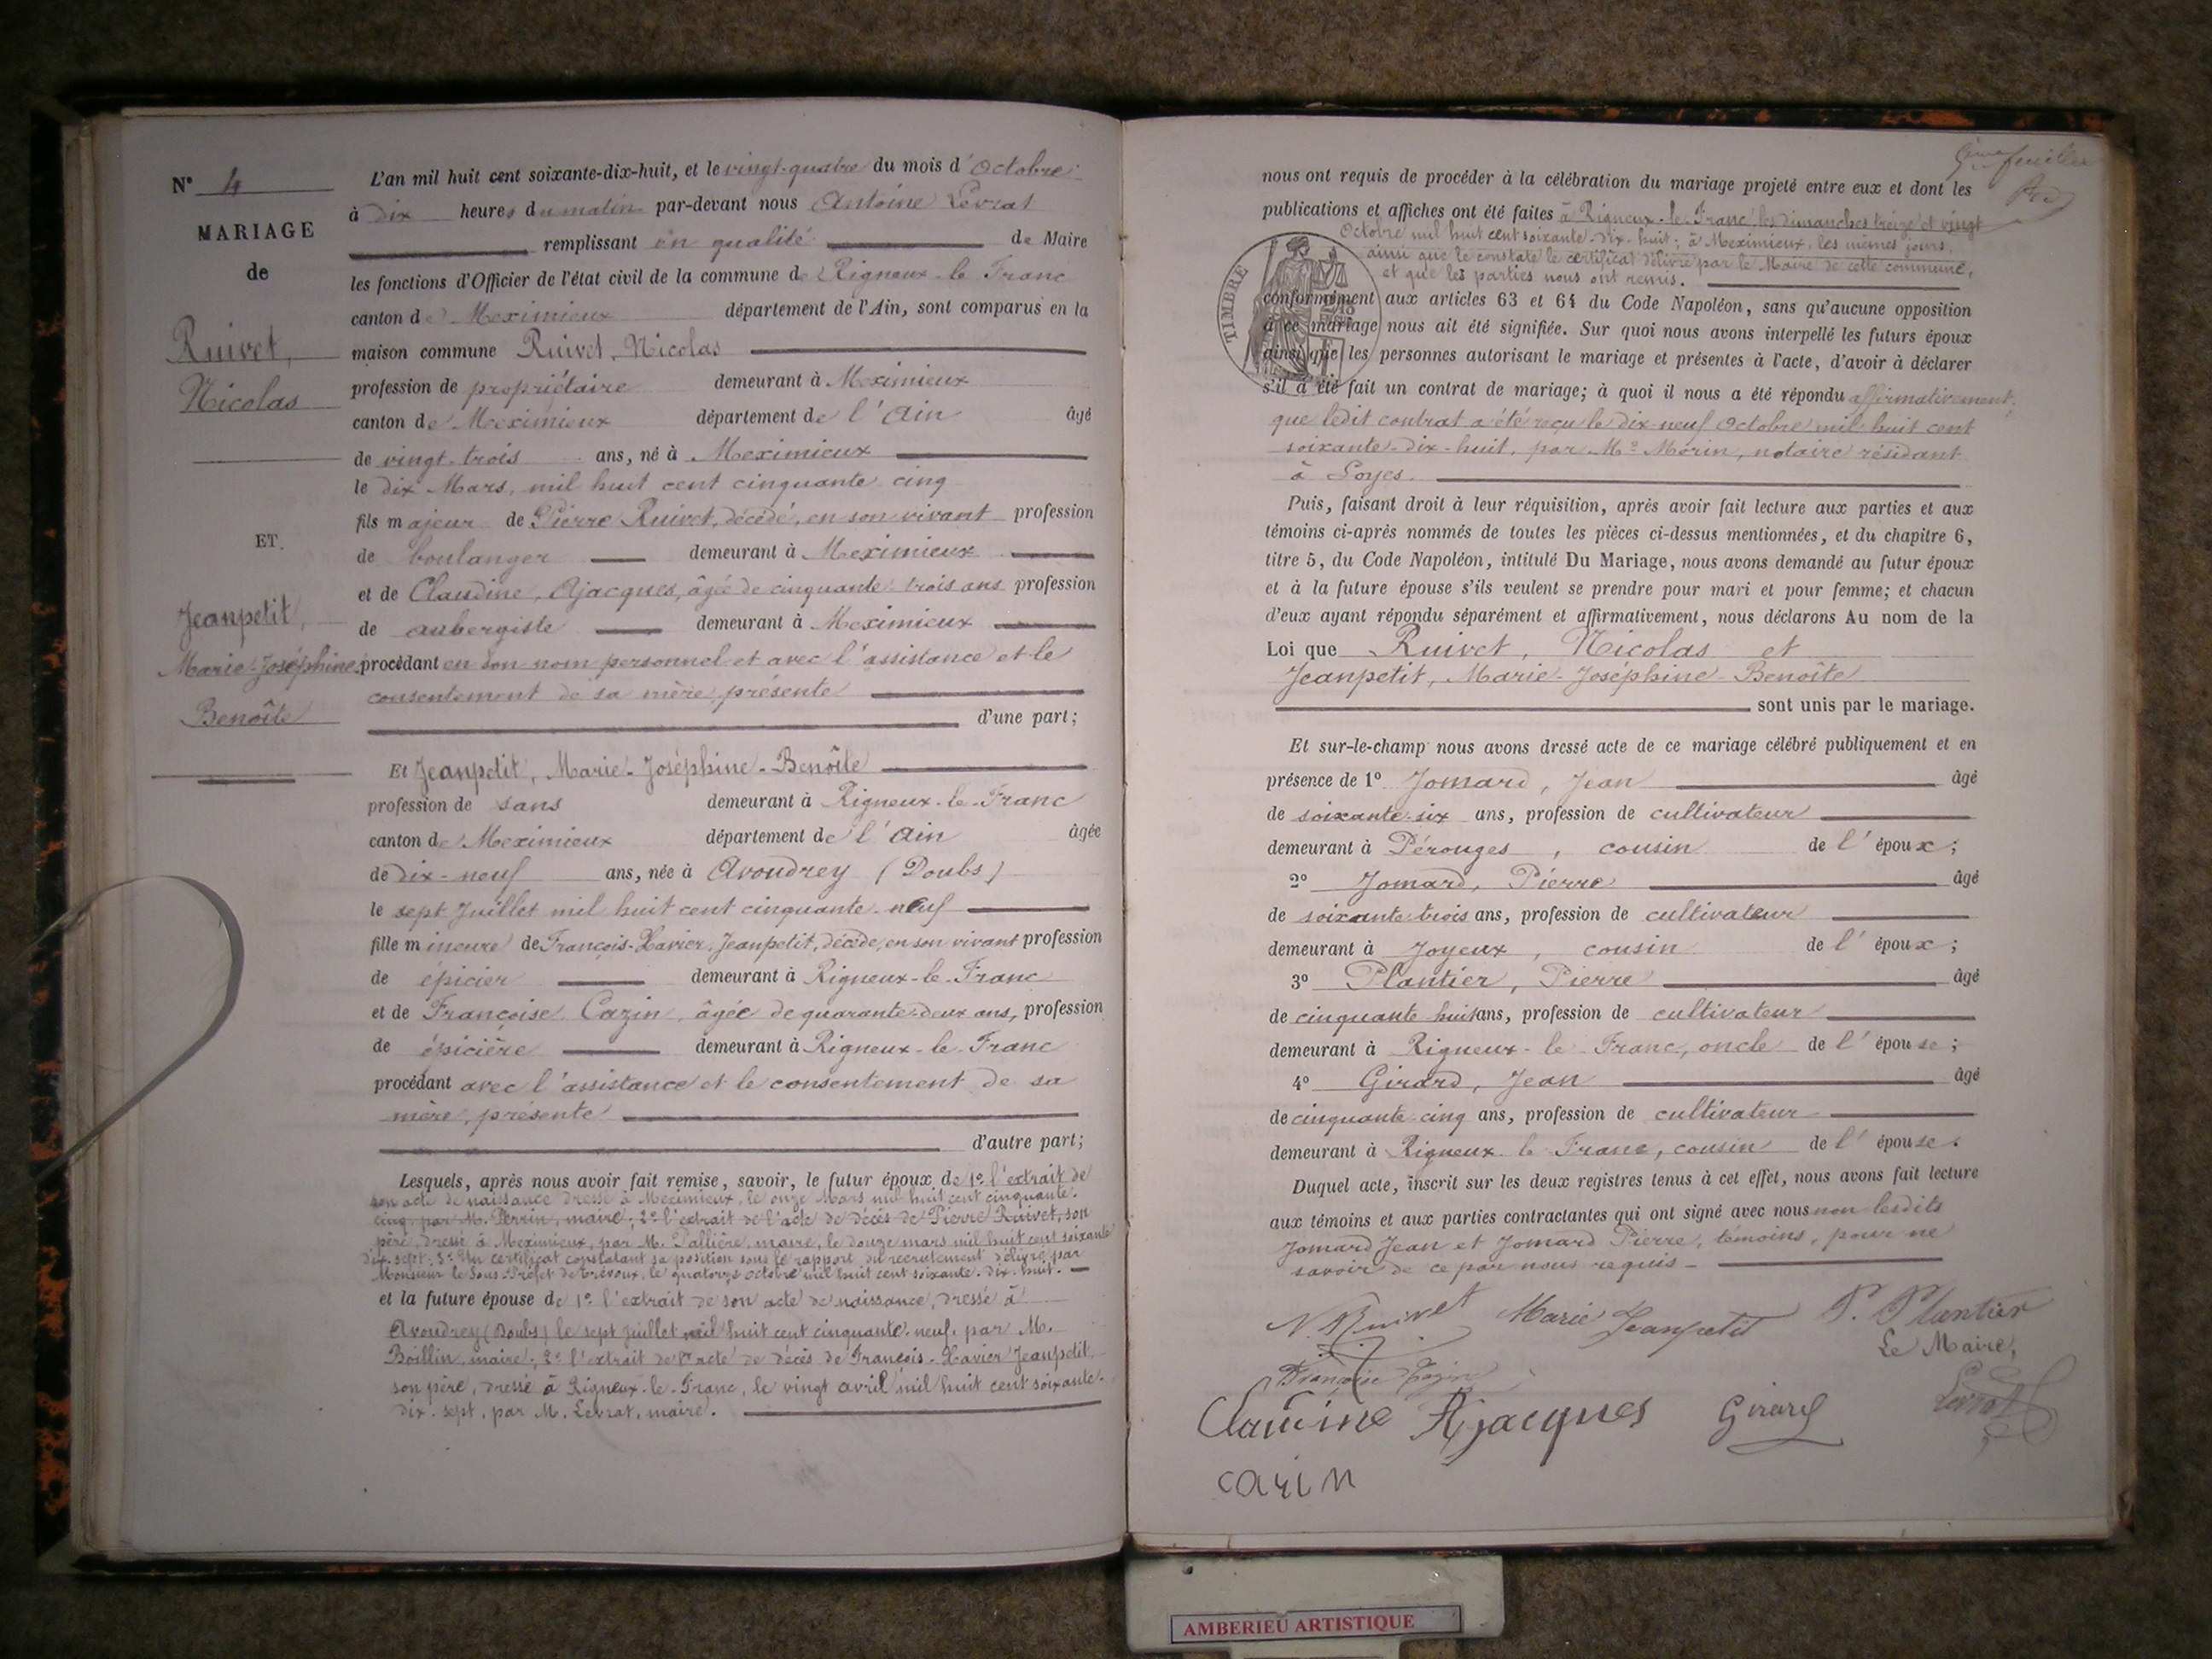 N° 4
MARIAGE
de
Ruivet,
Nicolas
ET
Jeanpetit,
Marie-Joséphine-
Benoîte
L'an mil huit cent soixante-dix-huit, et le vingt-quatre du mois d'Octobre
à dix heures du matin par-devant nous Antoine Levrat
remplissant en qualité de Maire
les fonctions d'Officier de l'état civil de la commune de Rigneux-le-Franc
canton de Meximieux département de l'Ain, sont comparus en la
maison commune Ruivet, Nicolas
profession de propriétaire demeurant à Meximieux
canton de Meximieux département de l'Ain âgé
de vingt-trois ans, né à Meximieux
le dix Mars, mil huit cent cinquante cinq
fils majeur de Pierre Ruivet, décédé, en son vivant profession
de boulanger demeurant à Meximieux
et de Claudine Ajacques, âgée de cinquante-trois ans profession
de aubergiste demeurant à Meximieux
procédant en son nom personnel et avec l'assistance et le
consentement de sa mère, présente
d'une part;
Et Jeanpetit, Marie-Joséphine-Benoîte
profession de sans demeurant à Rigneux-le-Franc
canton de Meximieux département de l'Ain âgée
de dix-neuf ans, née à Avoudrey (Doubs)
le sept Juillet mil huit cent cinquante-neuf
fille mineure de François-Xavier Jeanpetit, décédé, en son vivant profession
de épicier demeurant à Rigneux-le-Franc
et de Françoise Cazin, âgée de quarante-deux ans, profession
de épicière demeurant à Rigneux-le-Franc
procédant avec l'assistance et le consentement de sa
mère, présente
d'autre part;
Lesquels, après nous avoir fait remise, savoir, le futur époux de 1° l'extrait de
son acte de naissance dressé à Meximieux, le onze Mars mil huit cent cinquante-
cinq, par M. Perrin, maire; 2° l'extrait de l'acte de décès de Pierre Ruivet, son
père, dressé à Meximieux, par M. Pallière, maire, le douze mars mil huit cent soixante
dix-sept; 3° Un certificat constatant sa position sous le rapport du recrutement délivré par
Monsieur le Sous-Préfet de Trévoux, le quatorze octobre mil huit cent soixante-dix-huit.
et la future épouse de 1° l'extrait de son acte de naissance, dressé à
Avoudrey (Doubs) le sept juillet mil huit cent cinquante-neuf, par M.
Boillin, maire; 2° l'extrait de l'acte de décès de François-Xavier Jeanpetit,
son père, dressé à Rigneux-le-Franc, le vingt avril mil huit cent soixante-
dix-sept, par M. Levrat, maire.
feuillet
nous ont requis de procéder à la célébration du mariage projeté entre eux et dont les
publications et affiches ont été faites à Rigneux-le-Franc, les dimanches treize et vingt
Octobre mil huit cent soixante-dix-huit; à Meximieux, les mêmes jours,
ainsi que le constate le certificat délivré par le Maire de cette commune,
et que les parties nous ont remis.
TIMBRE
conformément aux articles 63 et 64 du Code Napoléon, sans qu'aucune opposition
à ce mariage nous ait été signifiée. Sur quoi nous avons interpellé les futurs époux
ainsi que les personnes autorisant le mariage et présentes à l'acte, d'avoir à déclarer
s'il a été fait un contrat de mariage; à quoi il nous a été répondu affirmativement;
que ledit contrat a été reçu le dix-neuf Octobre mil huit cent
soixante-dix-huit, par Me Morin, notaire résidant
à Loyes.
Puis, faisant droit à leur réquisition, après avoir fait lecture aux parties et aux
témoins ci-après nommés de toutes les pièces ci-dessus mentionnées, et du chapitre 6,
titre 5, du Code Napoléon, intitulé Du Mariage, nous avons demandé au futur époux
et à la future épouse s'ils veulent se prendre pour mari et pour femme; et chacun
d'eux ayant répondu séparément et affirmativement, nous déclarons Au nom de la
Loi que Ruivet, Nicolas et
Jeanpetit, Marie-Joséphine-Benoîte
sont unis par le mariage.
Et sur-le-champ nous avons dressé acte de ce mariage célébré publiquement et en
présence de 1° Jomard, Jean âgé
de soixante-six ans, profession de cultivateur
demeurant à Pérouges, cousin de l'époux;
2° Jomard, Pierre âgé
de soixante-trois ans, profession de cultivateur
demeurant à Joyeux, cousin de l'époux;
3° Plantier, Pierre âgé
de cinquante huit ans, profession de cultivateur
demeurant à Rigneux-le-Franc, oncle de l'épouse;
4° Girard, Jean âgé
de cinquante-cinq ans, profession de cultivateur
demeurant à Rigneux-le-Franc, cousin de l'épouse.
Duquel acte, inscrit sur les deux registres tenus à cet effet, nous avons fait lecture
aux témoins et aux parties contractantes qui ont signé avec nous non lesdits
Jomard Jean et Jomard Pierre, témoins, pour ne
savoir de ce par nous requis.
N. Ruivet Marie Jeanpetit P. Plantier
Le Maire,
Françoise Cazin
Claudine Ajacques Girard Levrat
cazin
AMBERIEU ARTISTIQUE